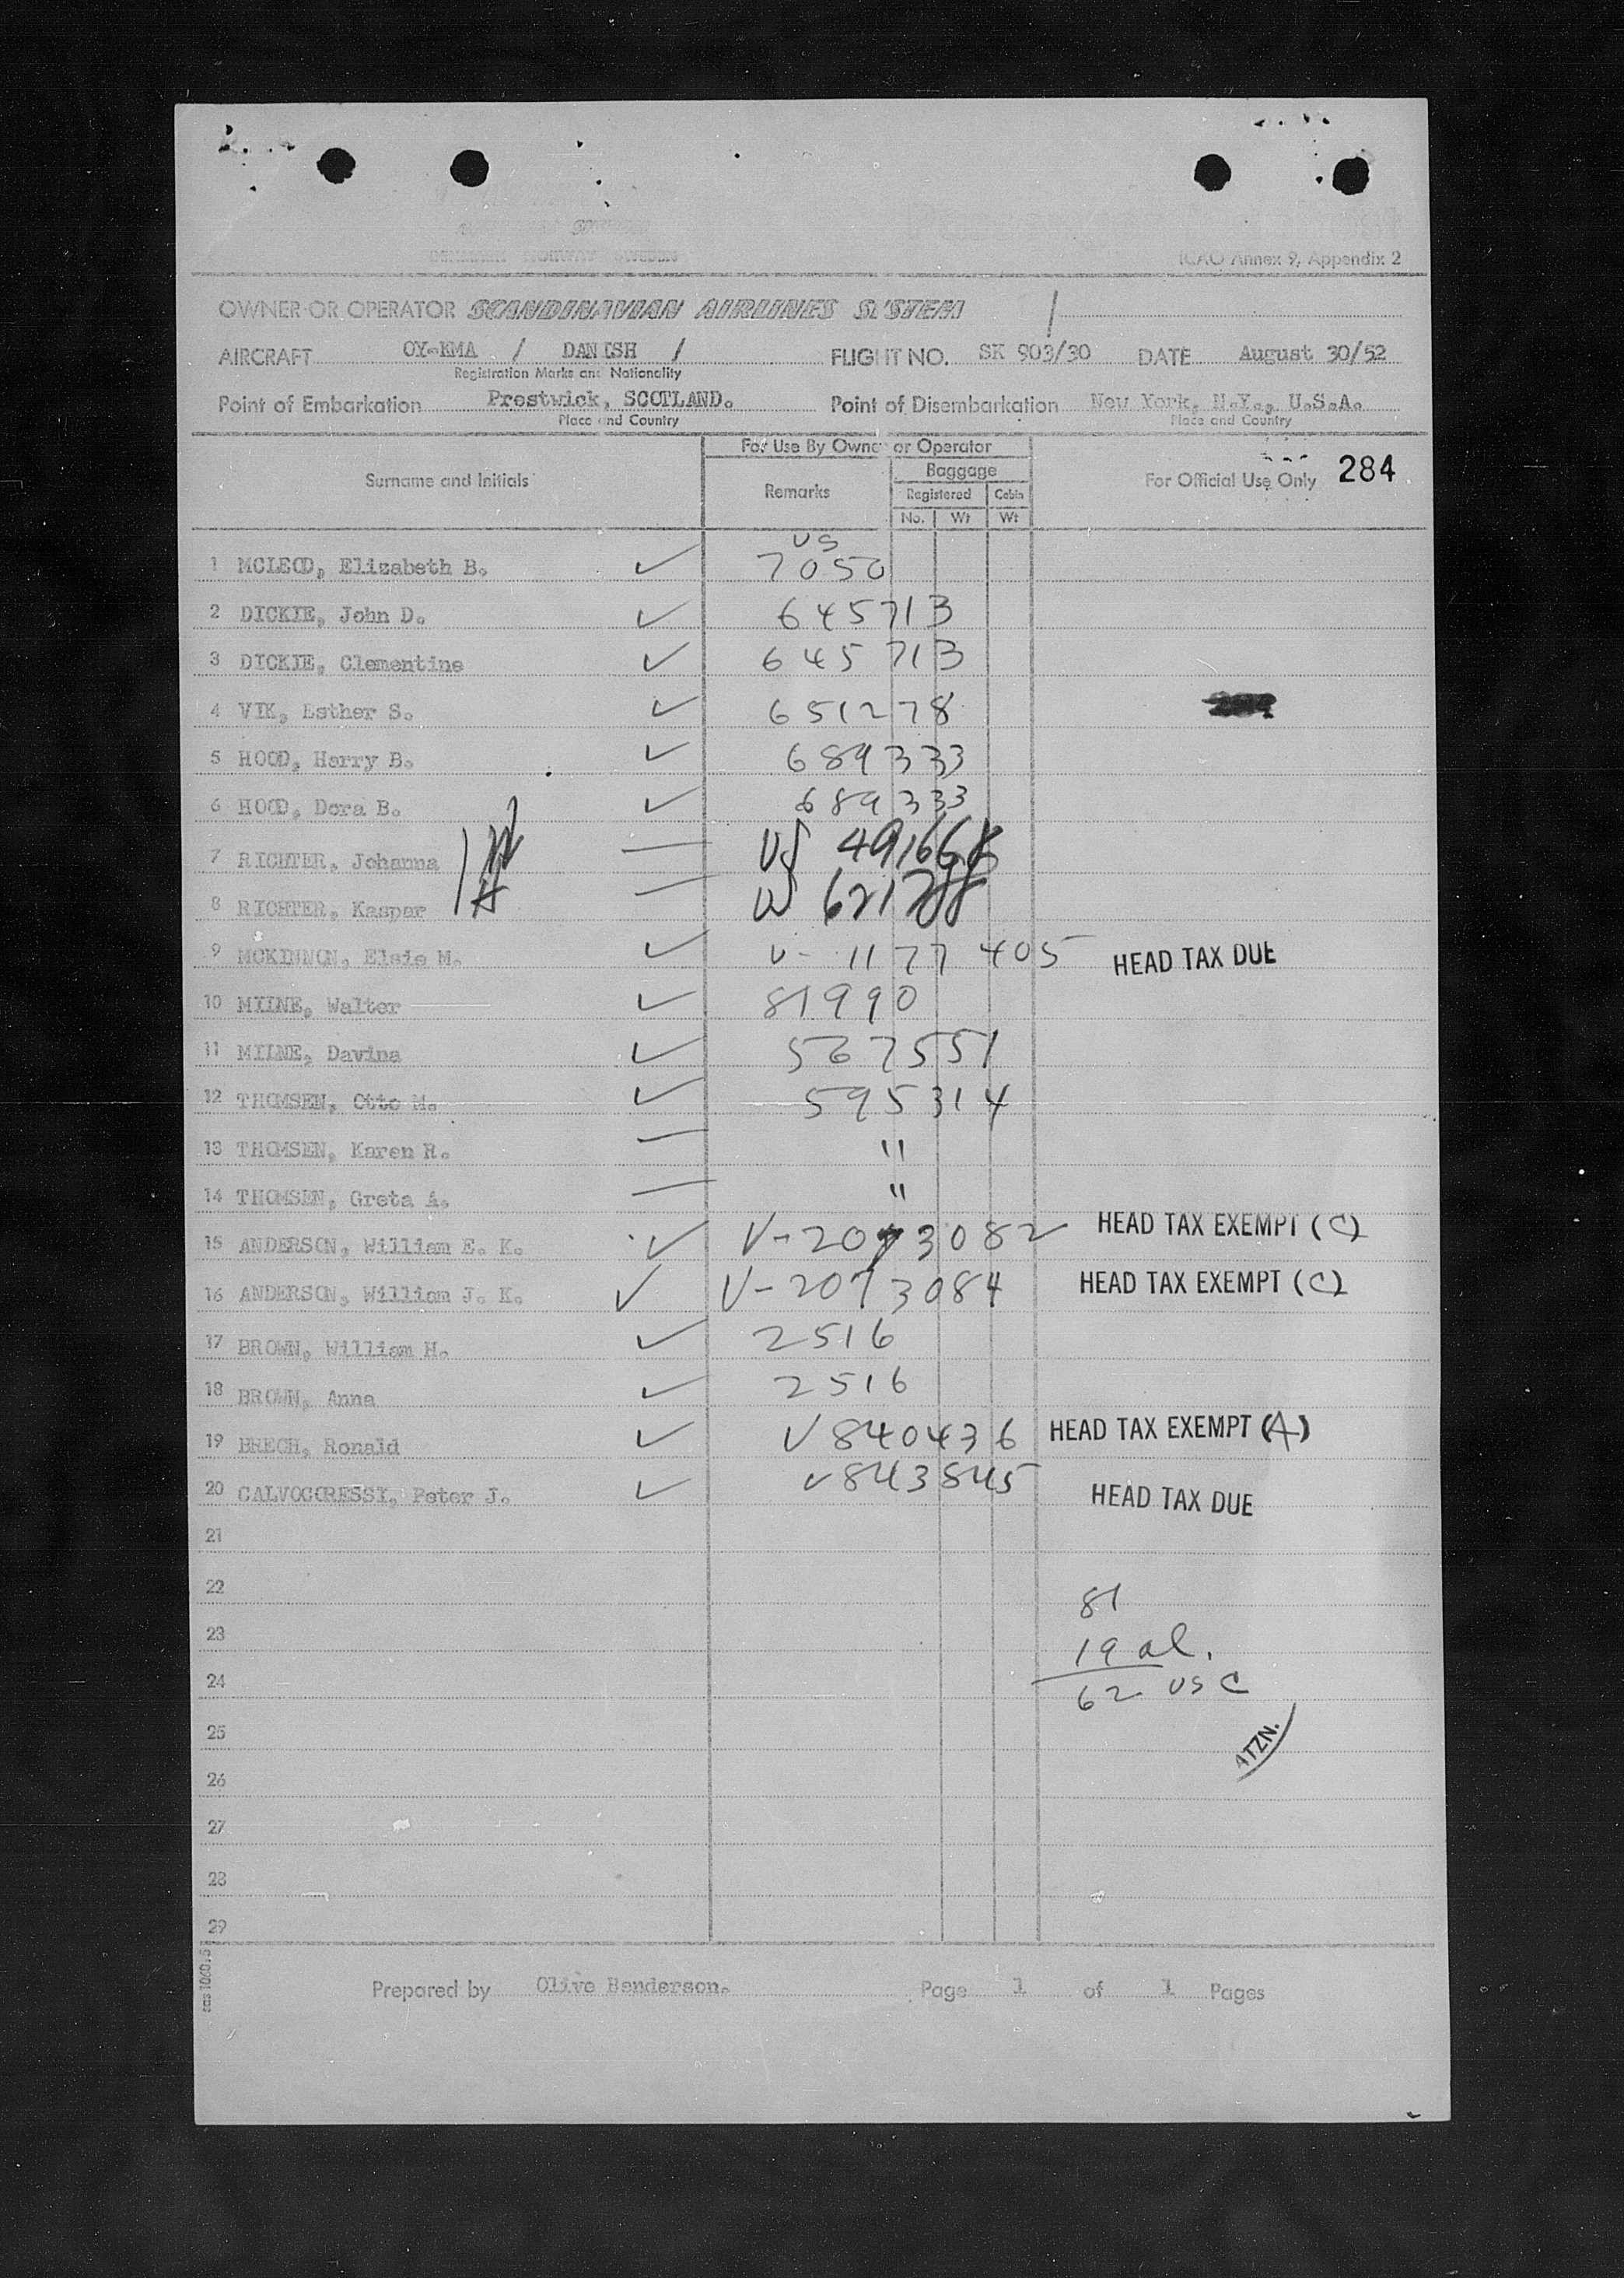 DENMARK NORWAY SWEDEN
ICAO Annex 9, Appendix 2
OWNER OR OPERATOR SCANDINAVIAN AIRLINES SYSTEM
AIRCRAFT OY-KMA / DANISH / FLIGHT NO. SK 903/30 DATE August 30/52
Registration Marks and Nationality
Point of Embarkation Prestwick, SCOTLAND. Point of Disembarkation New York, N.Y., U.S.A.
Place and Country Place and Country
For Use By Owner or Operator
Surname and Initials Remarks Baggage For Official Use Only 284
Registered Cabin
No. Wt Wt
US
1 MCLEOD, Elizabeth B. 7050
2 DICKIE, John D. 645713
3 DICKIE, Clementine 645713
4 VIK, Esther S. 651278
5 HOOD, Harry B. 689333
6 HOOD, Dora B. 689333
7 RICHTER, Johanna US
8 RICHTER, Kaspar US
9 MCKINNON, Elsie M. V- 1177405 HEAD TAX DUE
10 MILNE, Walter 81990
11 MILNE, Davina 567551
12 THOMSEN, Otto M. 595314
13 THOMSEN, Karen R. "
14 THOMSEN, Greta A. "
15 ANDERSON, William E. K. V-2073082 HEAD TAX EXEMPT (C)
16 ANDERSON, William J. K. V-2073084 HEAD TAX EXEMPT (C)
17 BROWN, William H. 2516
18 BROWN, Anna 2516
19 BRECH, Ronald V840436 HEAD TAX EXEMPT (A)
20 CALVOCORESSI, Peter J. V843845 HEAD TAX DUE
21
22 81
23 19 al.
24 62 USC
25 ATZN.
26
27
28
29
sas 1060.5
Prepared by Olive Henderson. Page 1 of 1 Pages